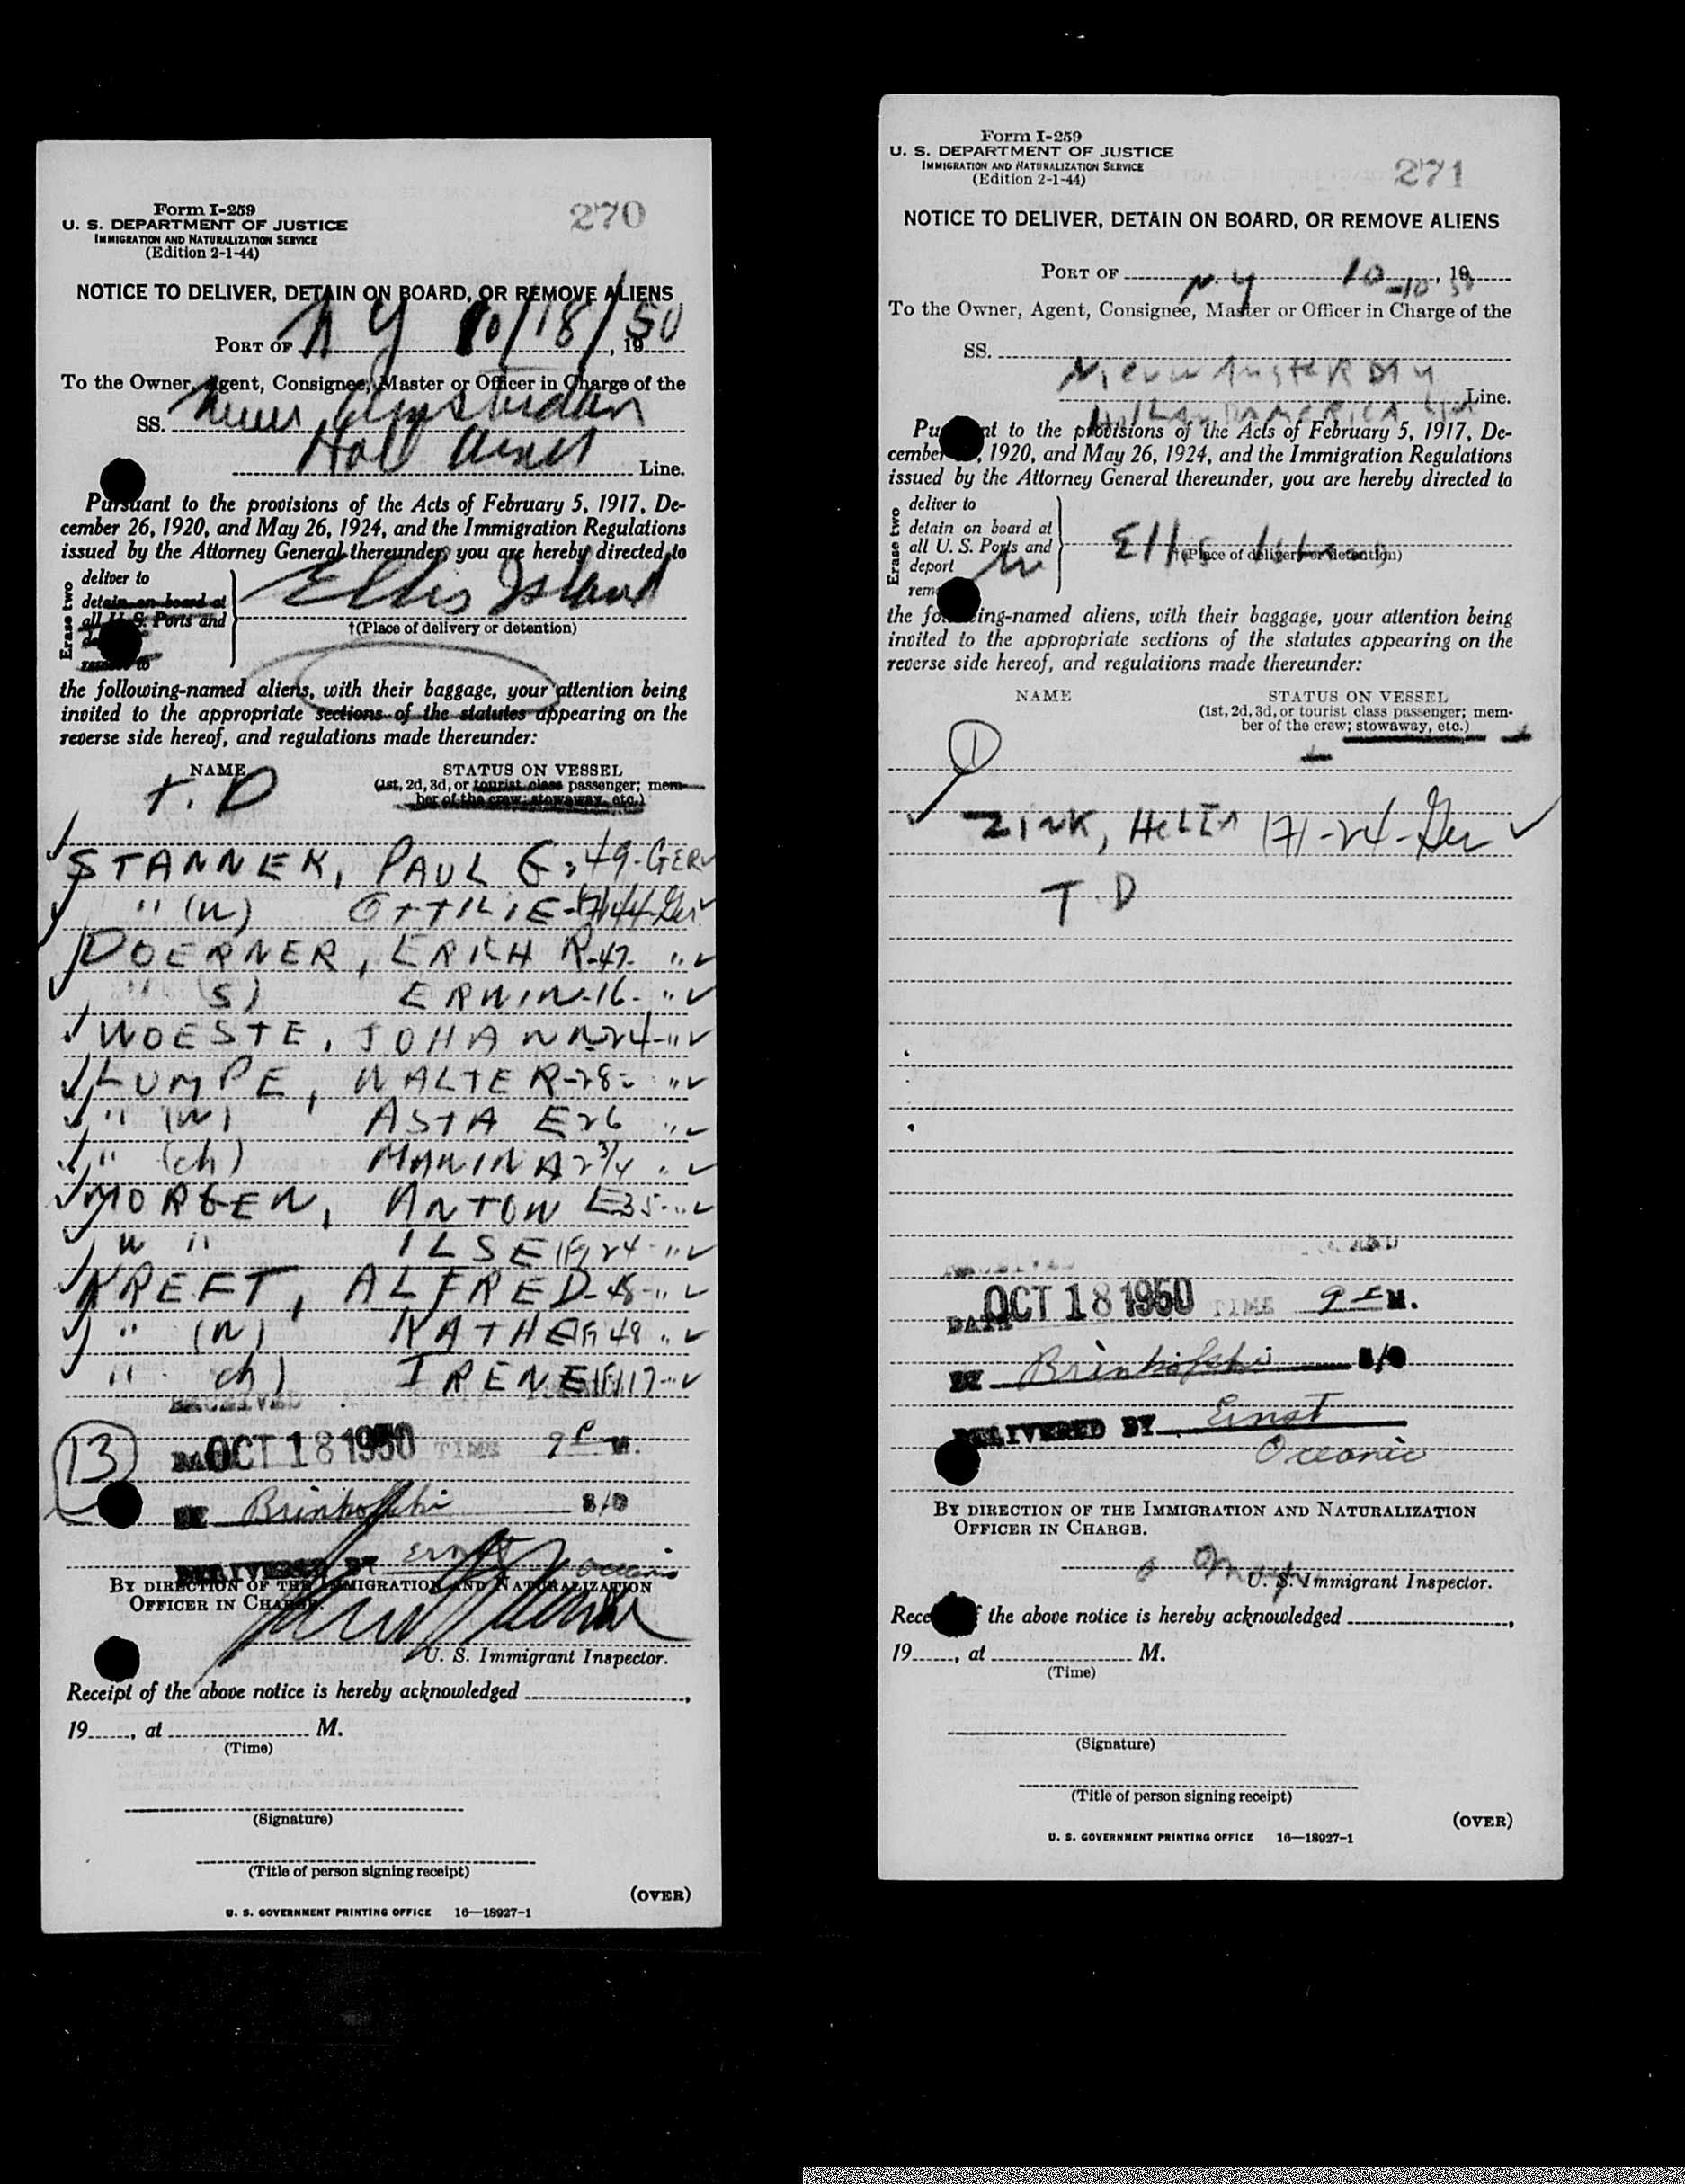 Form I-259
U. S. DEPARTMENT OF JUSTICE
IMMIGRATION AND NATURALIZATION SERVICE
(Edition 2-1-44)
270
NOTICE TO DELIVER, DETAIN ON BOARD, OR REMOVE ALIENS
PORT OF N Y 10/18/50, 19
To the Owner, Agent, Consignee, Master or Officer in Charge of the
SS. Nieuw Amsterdam
Holl Line.
Pursuant to the provisions of the Acts of February 5, 1917, De-
cember 26, 1920, and May 26, 1924, and the Immigration Regulations
issued by the Attorney General thereunder, you are hereby directed to
Erase two
deliver to
detain on board at
all U. S. Ports and
remove to
Ellis Island
†(Place of delivery or detention)
the following-named aliens, with their baggage, your attention being
invited to the appropriate sections of the statutes appearing on the
reverse side hereof, and regulations made thereunder:
NAME
STATUS ON VESSEL
(1st, 2d, 3d, or tourist class passenger; mem-
ber of the crew; stowaway, etc.)
T. D
STANNEK, PAUL G, 49-GER
" (W) OTTILIE-(F)44-Ger
DOERNER, ERICH R-47- "
" (S) ERWIN-16- "
WOESTE, JOHANN-24- "
LUMPE, WALTER-28- "
" (W) ASTA E26 "
" (ch) 2 3/4 "
MORGEN, ANTON E35- "
W " ILSE (F)24- "
KREFT, ALFRED-48- "
" (W) KATHE (F)48 "
" ch) IRENE (F)17- "
RECEIVED
13
DATE OCT 18 1950 TIME 9 P M.
BY S/O
DELIVERED BY Ernst Oceanic
BY DIRECTION OF THE IMMIGRATION AND NATURALIZATION
OFFICER IN CHARGE.
U. S. Immigrant Inspector.
Receipt of the above notice is hereby acknowledged
19, at M.
(Time)
(Signature)
(Title of person signing receipt)
(OVER)
U. S. GOVERNMENT PRINTING OFFICE 16—18927-1
Form I-259
U. S. DEPARTMENT OF JUSTICE
IMMIGRATION AND NATURALIZATION SERVICE
(Edition 2-1-44)
271
NOTICE TO DELIVER, DETAIN ON BOARD, OR REMOVE ALIENS
PORT OF N. Y 10, 19
To the Owner, Agent, Consignee, Master or Officer in Charge of the
SS.
Nieuw Amsterdam
Holland America Line Line.
to the provisions of the Acts of February 5, 1917, De-
cember, 1920, and May 26, 1924, and the Immigration Regulations
issued by the Attorney General thereunder, you are hereby directed to
Erase two
deliver to
detain on board at
all U. S. Ports and
deport
Ellis Island
†(Place of delivery or detention)
the following-named aliens, with their baggage, your attention being
invited to the appropriate sections of the statutes appearing on the
reverse side hereof, and regulations made thereunder:
NAME
STATUS ON VESSEL
(1st, 2d, 3d, or tourist class passenger; mem-
ber of the crew; stowaway, etc.)
1
ZINK, (F)-24-Ger
T. D
RECEIVED
DATE OCT 18 1950 TIME 9 P M.
BY S/O
DELIVERED BY Ernst
Oceanic
BY DIRECTION OF THE IMMIGRATION AND NATURALIZATION
OFFICER IN CHARGE.
U. S. Immigrant Inspector.
the above notice is hereby acknowledged,
19, at M.
(Time)
(Signature)
(Title of person signing receipt)
(OVER)
U. S. GOVERNMENT PRINTING OFFICE 16—18927-1